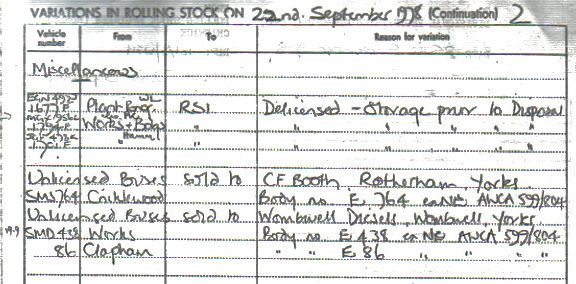 VARIATIONS IN ROLLING STOCK ON 22nd. September 1978 (Continuation) 2
Vehicle number From To Reason for variation
Miscellaneous
1677F Plant RSI Delicensed - Storage prior to Disposal
1764F Works " " " " "
" " " " "
Unlicensed Buses sold to CF Booth, Rotherham, Yorks.
SMS764 Cricklewood Body no E 764 ex NE AWCA S99/804
Unlicensed Buses sold to Wombwell Diesels, Wombwell, Yorks.
19.9 SMD438 Works Body no E 438 ex NE AWCA S99/804
86 Clapham " " E 86 " " " "